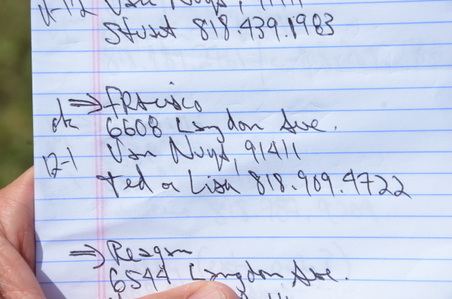 11-12 Van Nuys, 91411
Stuart 818.439.1983
ok ⇒ Francisco
6608 Langdon Ave.
12-1 Van Nuys, 91411
Ted or Lisa 818.909.4722
⇒ Reagan
6544 Langdon Ave.